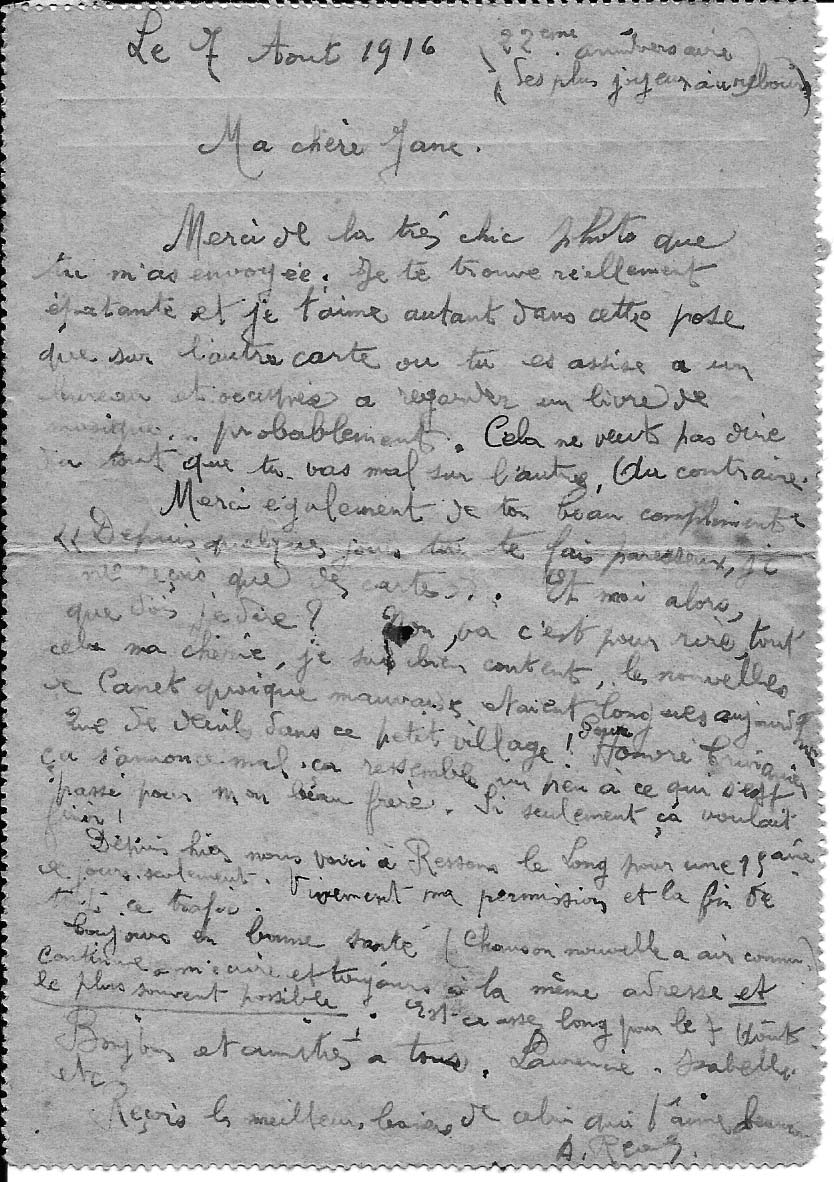 Le 7 Aout 1916 (22eme anniversaire)
(des plus joyeux au rebours)
Ma chère Jane.
Merci de la très chic photo que
tu m'as envoyée. Je te trouve réellement
épatante et je t'aime autant dans cette pose
que sur l'autre carte ou tu es assise a un
bureau et occupée a regarder un livre de
musique... probablement. Cela ne veut pas dire
du tout que tu vas mal sur l'autre, Au contraire.
Merci également de ton beau compliment
"Depuis quelques jours tu te fais paresseux, je
ne reçois que des cartes". Et moi alors,
que dois je dire? Non, va c'est pour rire tout
cela ma chérie, je suis bien content, les nouvelles
de Canet quoique mauvaises etaient longues aujourd'hui
Que de deuils dans ce petit village! Pour Honoré
ça s'annonce mal, ça ressemble un peu à ce qui s'est
passé pour mon beau frère. Si seulement ça voulait
finir!
Depuis hier nous voici à Ressons le Long pour une 15aine
de jours seulement. Vivement ma permission et la fin de
tout ce trafic.
Toujours en bonne santé (Chanson nouvelle a air connu)
Continue a m'écrire et toujours à la même adresse et
le plus souvent possible. Est-ce assez long pour le 7 Août
Bonjour et amitiés a tous. Laurencie - Isabelle
etc
Reçois les meilleurs baisers de celui qui t'aime
A.